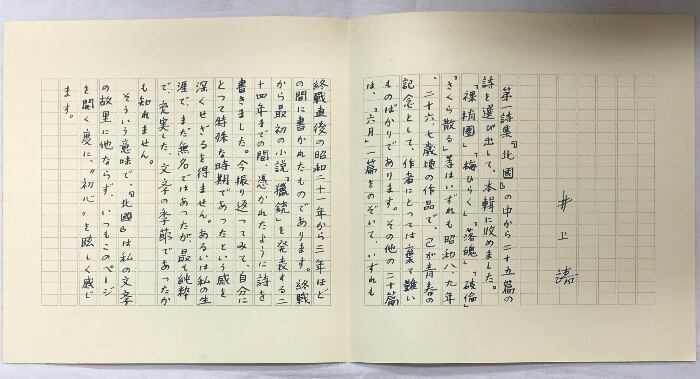 井上靖
第一詩集『北國』の中から二十五篇の
詩を選び出して、本輯に收めました。
「裸梢園」「梅ひらく」「落魄」「破倫」
「さくら散る」等はいずれも昭和八、九年
、二十六、七歳頃の作品で、己が青春の
記念として、作者にとっては棄て難い
ものばかりであります。その他の二十篇
は、「六月」一篇をのぞいて、いずれも
終戰直後の昭和二十一年から三年ほど
の間に書かれたものであります。終戰
から最初の小説「獵銃」を発表する二
十四年までの間、憑かれたように詩を
書きました。今振り返ってみて、自分に
とって特殊な時期であったという感を
深くせざるを得ません。あるいは私の生
涯で、まだ無名ではあったが、最も純粋
で、充実した、文学の季節であったか
も知れません。
そういう意味で、『北國』は私の文学
の故里に他ならず、いつもこのページ
を開く度に、“初心”を眩しく感じ
ます。